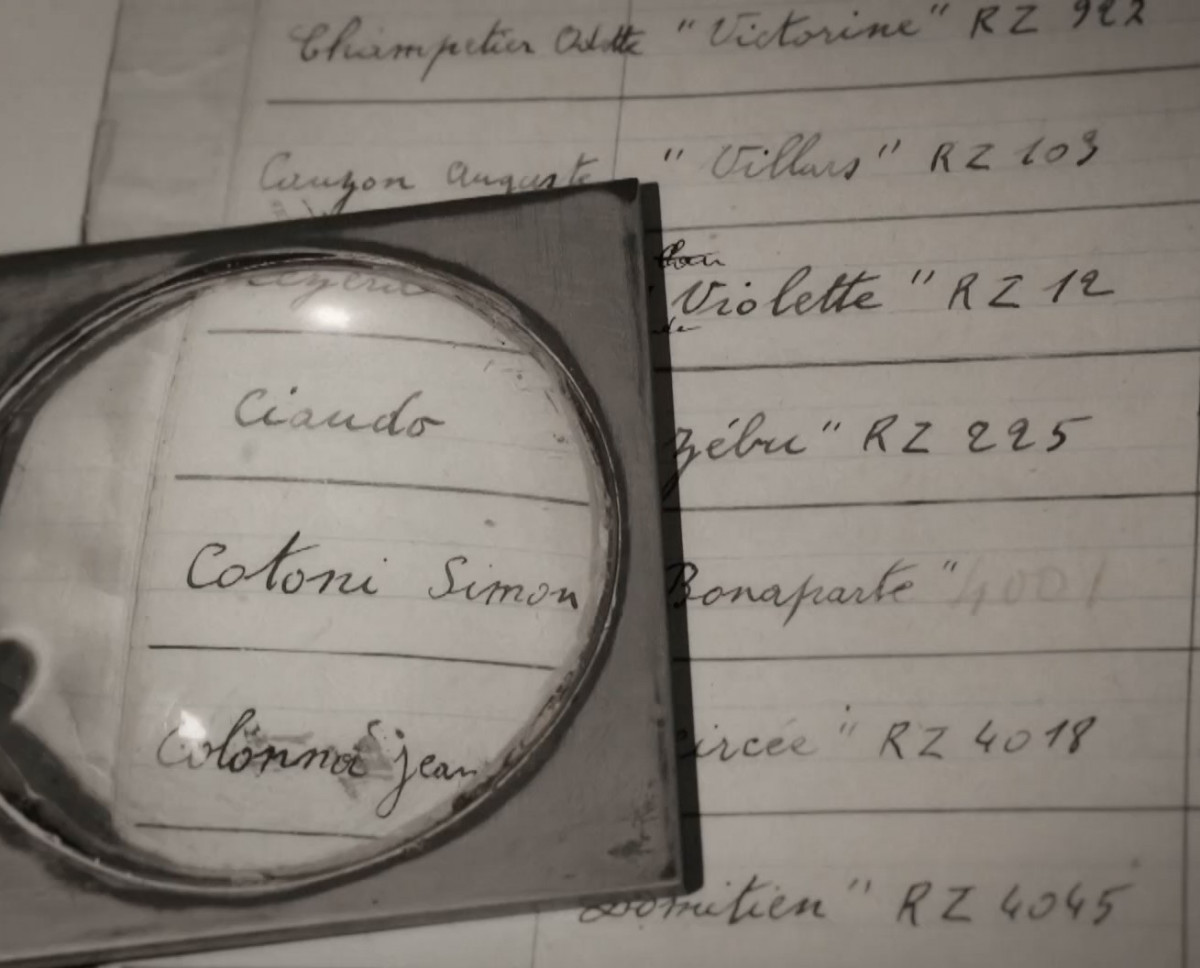 Champetier Odette "Victorine" RZ 922
Cauzon Auguste "Villars" RZ 103
Violette" RZ 12
Ciaudo zébu" RZ 225
Cotoni Simon Bonaparte" 4001
Colonna jean circée" RZ 4018
Domitien" RZ 4045